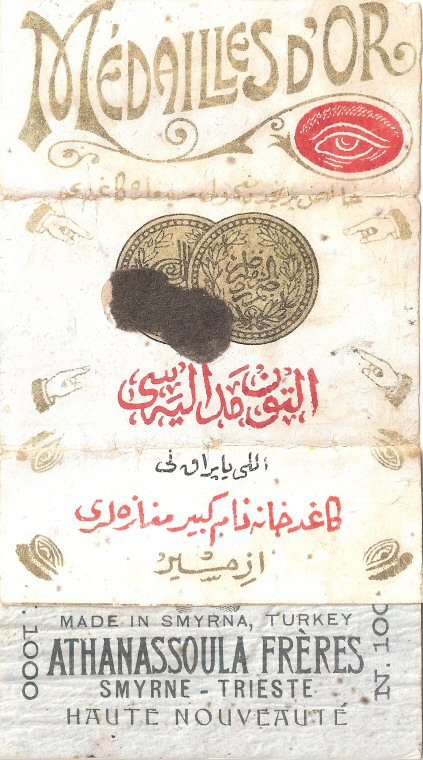 MÉDAILLES D'OR
التون مداليه سى
اللى ياپراق لى
كاغد خانه نام كبير مغازه لرى
ازمير
MADE IN SMYRNA, TURKEY
ATHANASSOULA FRÈRES
SMYRNE - TRIESTE
HAUTE NOUVEAUTÉ
1000
N. 100